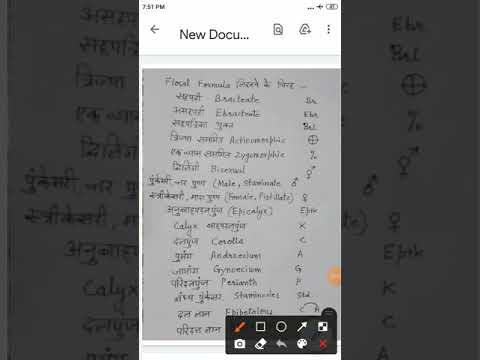 7:51 PM
New Docu...
Floral Formula लिखने के चिन्ह :-
सहपत्री Bracteate Br.
असहपत्री Ebracteate Ebr.
सहपत्रिका युक्त Brl
त्रिज्या सममित Actinomorphic ⊕
एक व्यास सममित Zygomorphic %
द्विलिंगी Bisexual ⚥
पुंकेसरी, नर पुष्प (Male, Staminate ♂
स्त्रीकेसरी, मादा पुष्प (Female, Pistillate) ♀
अनुबाह्यदलपुंज (Epicalyx) Epik
Calyx बाह्यदलपुंज K
दलपुंज Corolla C
पुमंग Androecium A
जायांग Gynoecium G
परिदलपुंज Perianth P
बंध्य पुंकेसर Staminodes Std
दल लग्न Epipetalous C A
परिदल लग्न